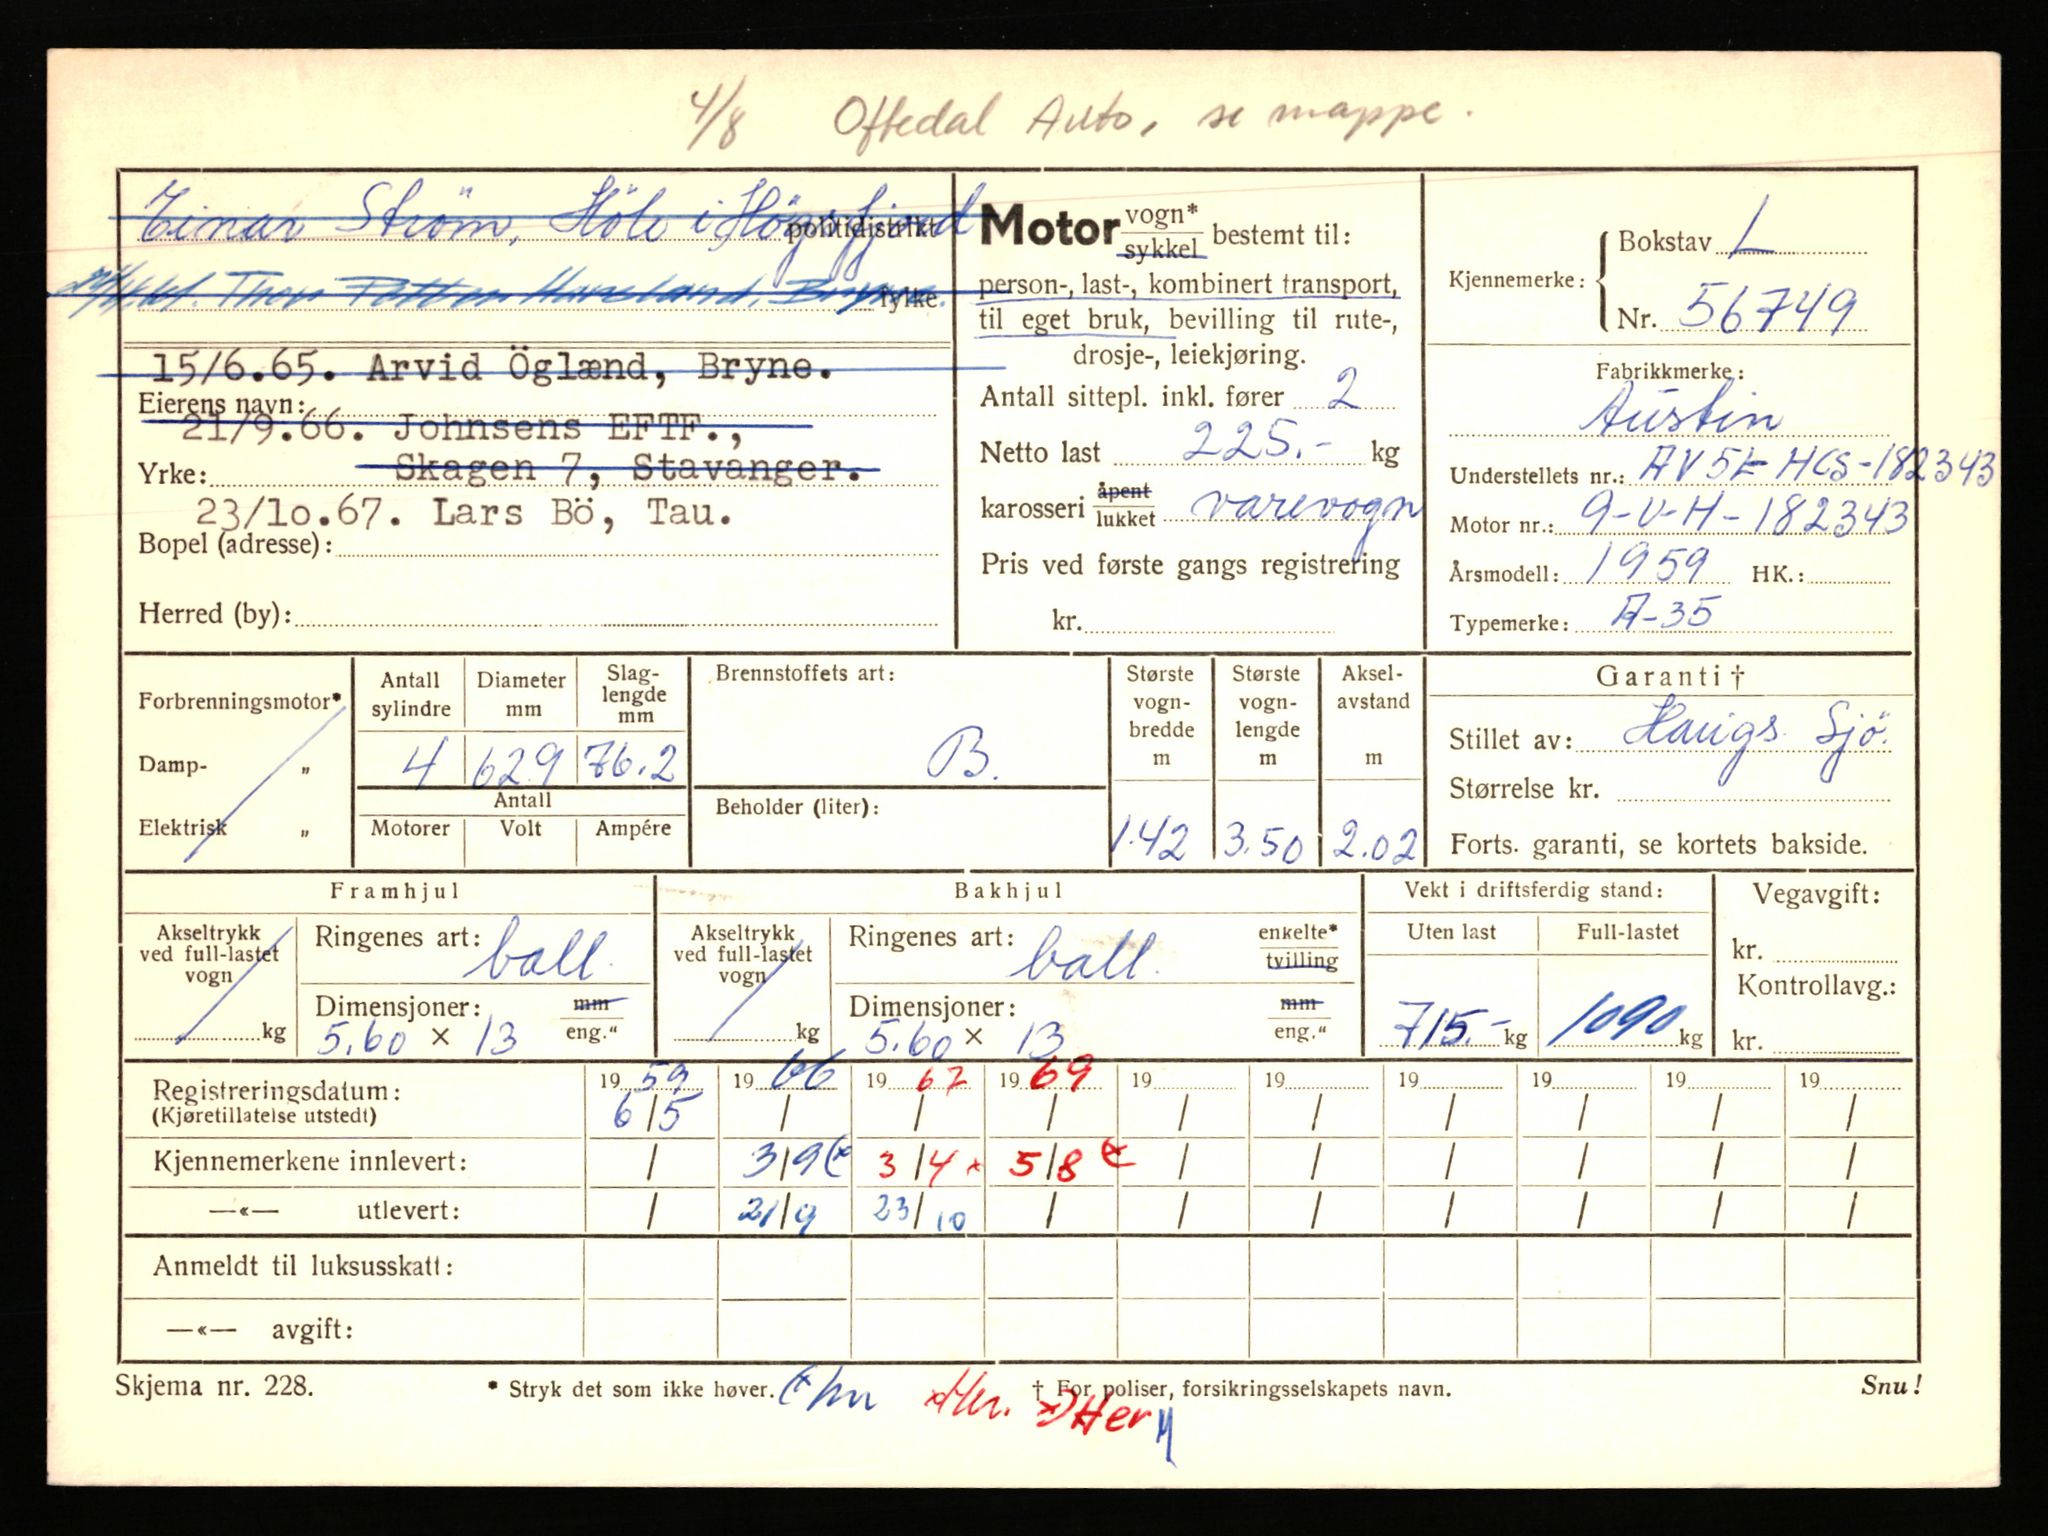 4/8 Oftedal Auto, se mappe.
Einar Ström, Höle i Högsfjord
politidistrikt
Thor Haveland, Bryne.
fylke
15/6.65. Arvid Öglænd, Bryne.
Eierens navn:
21/9.66. Johnsens EFTF.,
Yrke: Skagen 7, Stavanger.
23/lo.67. Lars Bö, Tau.
Bopel (adresse):
Herred (by):
Motor vogn* sykkel bestemt til:
person-, last-, kombinert transport,
til eget bruk, bevilling til rute-,
drosje-, leiekjøring.
Antall sittepl. inkl. fører 2
Netto last 225.- kg
karosseri åpent lukket varevogn
Pris ved første gangs registrering
kr.
Kjennemerke: Bokstav L
Nr. 56749
Fabrikkmerke:
Austin
Understellets nr.: AV5L HCS-182343
Motor nr.: 9-U-H-182343
Årsmodell: 1959 HK.:
Typemerke: A-35
Forbrenningsmotor*
Damp- „
Elektrisk „
Antall sylindre 4
Diameter mm 629
Slaglengde mm 76.2
Antall
Motorer Volt Ampére
Brennstoffets art:
B.
Beholder (liter):
Største vogn-bredde m 1.42
Største vogn-lengde m 3.50
Aksel-avstand m 2.02
Garanti †
Stillet av: Haugs. Sjö.
Størrelse kr.
Forts. garanti, se kortets bakside.
Framhjul
Akseltrykk ved full-lastet vogn kg
Ringenes art: ball.
Dimensjoner: mm eng."
5.60 × 13
Bakhjul
Akseltrykk ved full-lastet vogn kg
Ringenes art: ball. enkelte* tvilling
Dimensjoner: mm eng."
5.60 × 13
Vekt i driftsferdig stand:
Uten last Full-lastet
715.- kg 1090 kg
Vegavgift:
kr.
Kontrollavg.:
kr.
Registreringsdatum: 19 59 19 66 19 67 19 69 19 19 19 19 19 19
(Kjøretillatelse utstedt) 6/5 / / / / / / / / /
Kjennemerkene innlevert: / 3/9 (x 3/4 x 5/8 (x / / / / / /
—«— utlevert: / 21/9 23/10 / / / / / / /
Anmeldt til luksusskatt:
—«— avgift:
Skjema nr. 228. * Stryk det som ikke høver. † For poliser, forsikringsselskapets navn. Snu!
x Her. x) Her